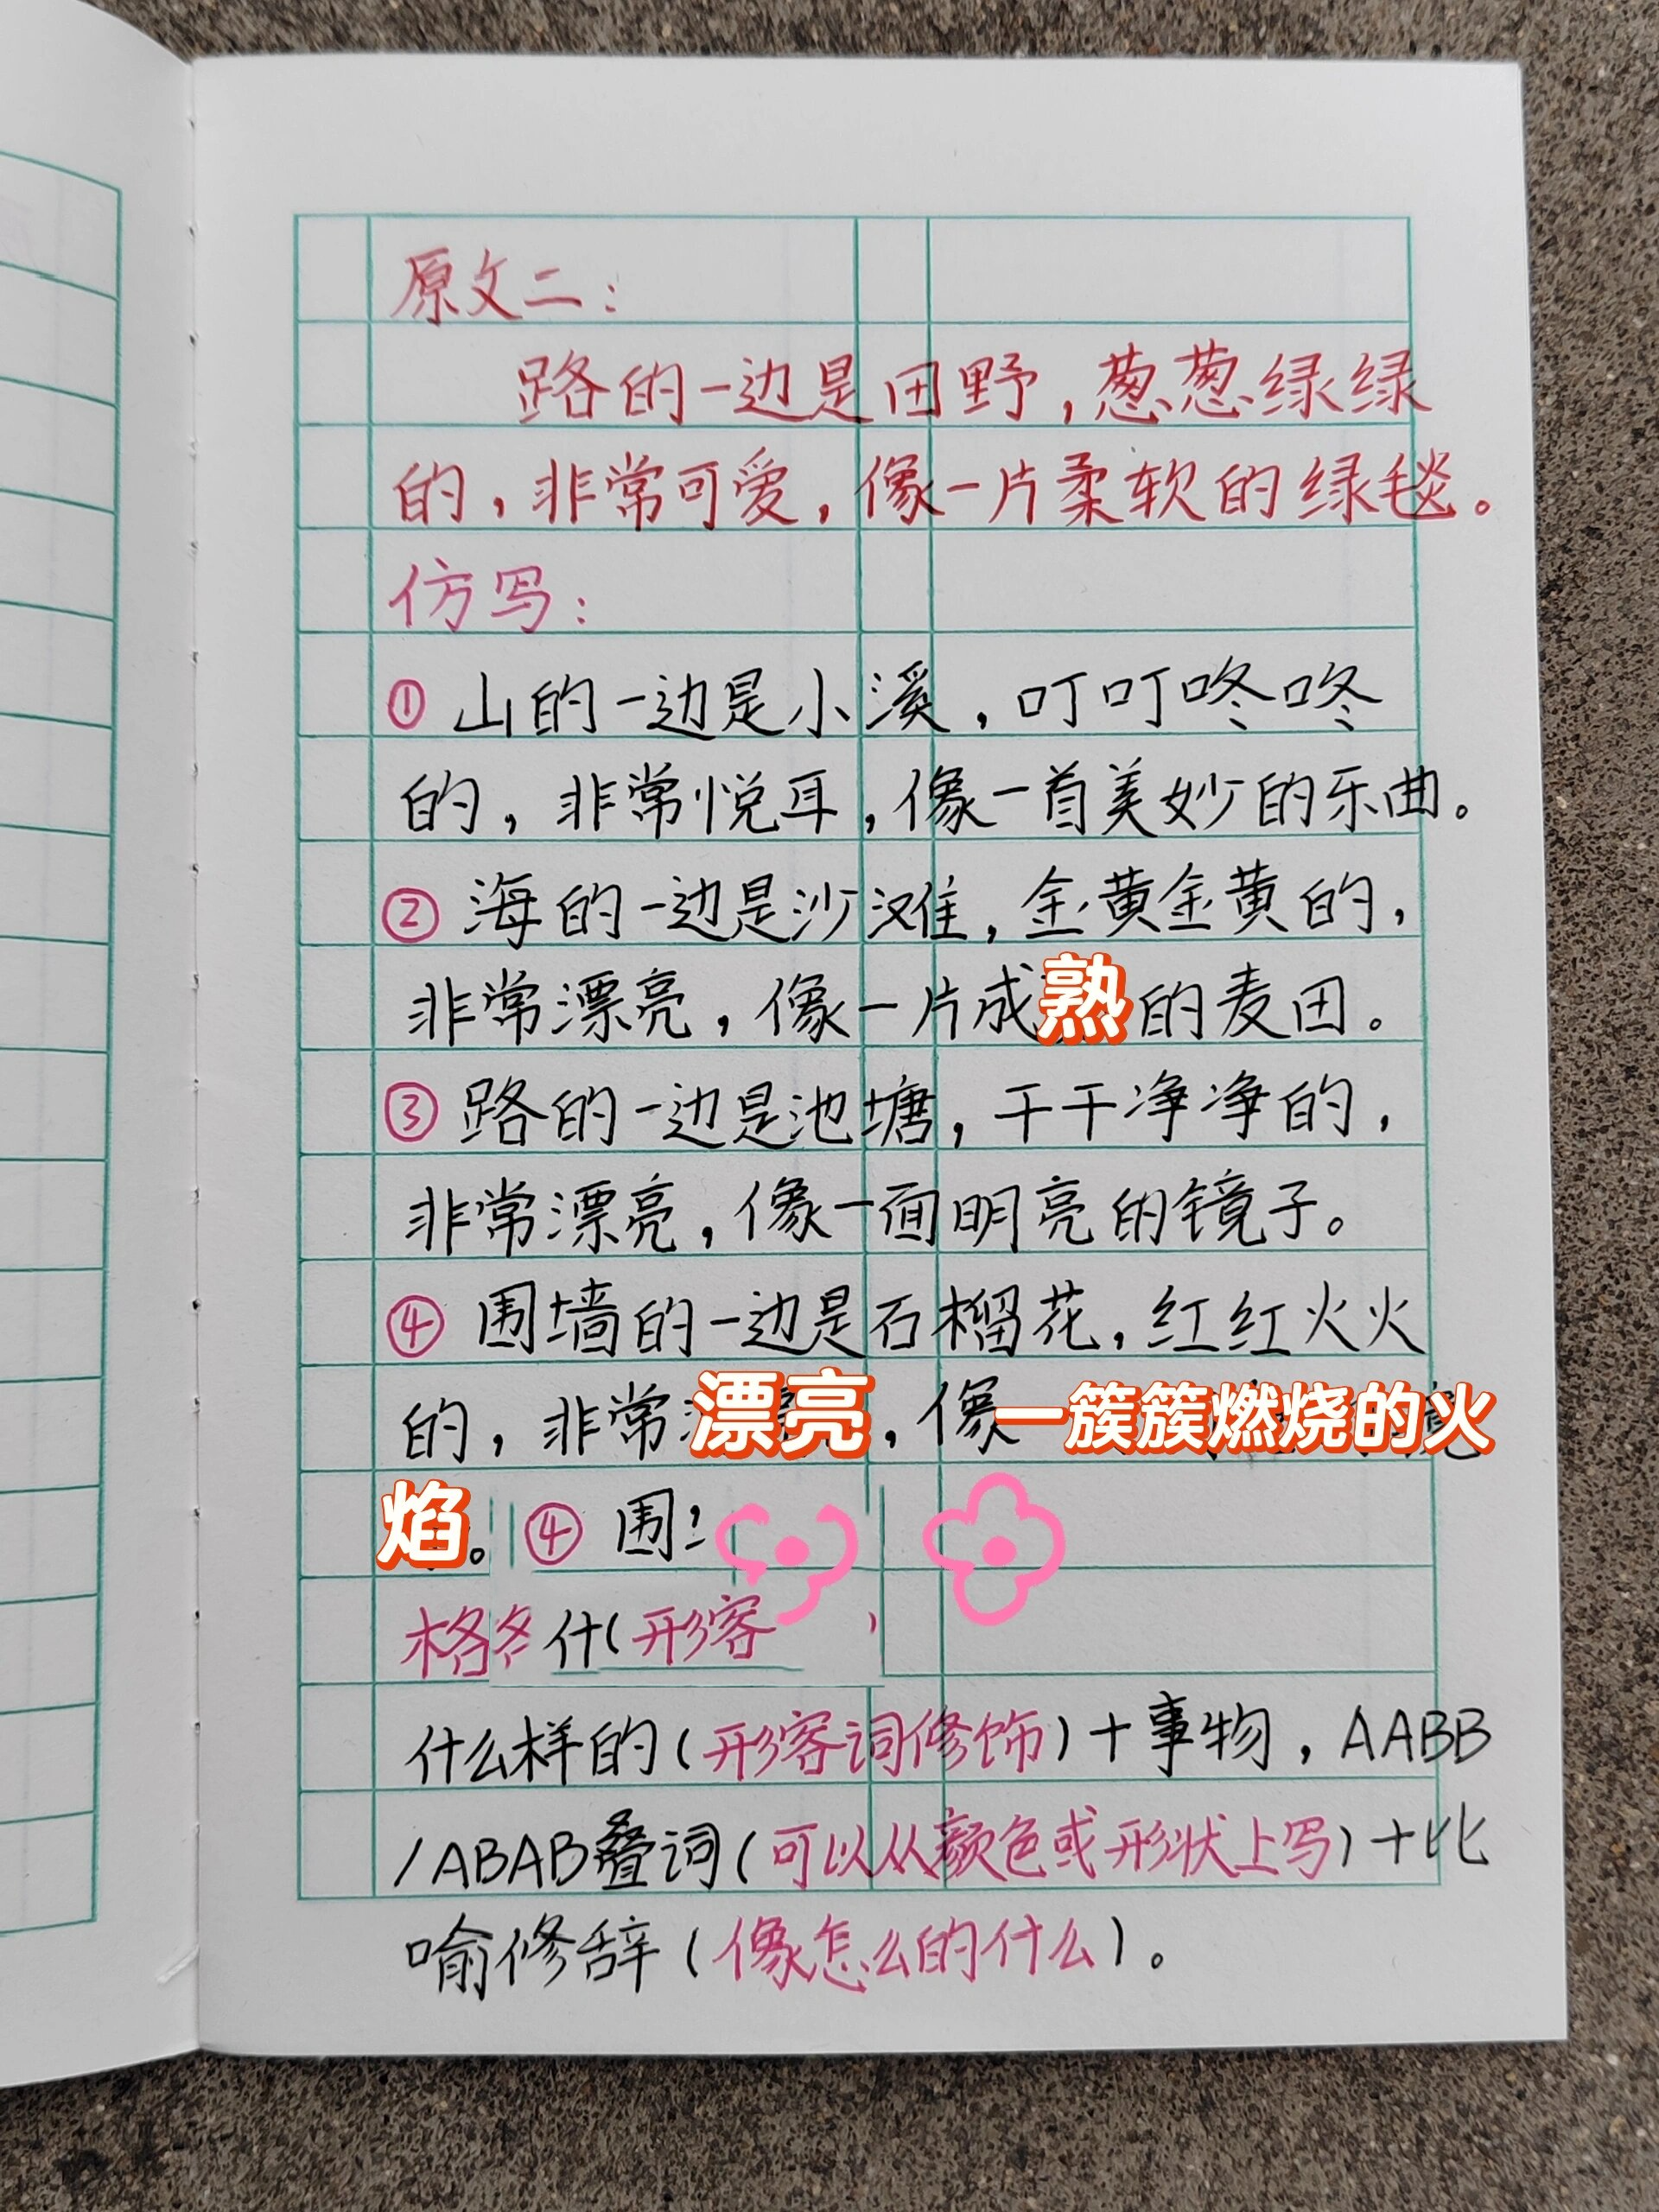 原文二：
路的一边是田野，葱葱绿绿
的，非常可爱，像一片柔软的绿毯。
仿写：
① 山的一边是小溪，叮叮咚咚
的，非常悦耳，像一首美妙的乐曲。
② 海的一边是沙滩，金黄金黄的，
非常漂亮，像一片成熟的麦田。
③ 路的一边是池塘，干干净净的，
非常漂亮，像一面明亮的镜子。
④ 围墙的一边是石榴花，红红火火
的，非常漂亮，像一簇簇燃烧的火
焰。④ 围
格 什(形容
什么样的(形容词修饰)+事物，AABB
/ABAB叠词(可以从颜色或形状上写)+比
喻修辞(像怎么的什么)。